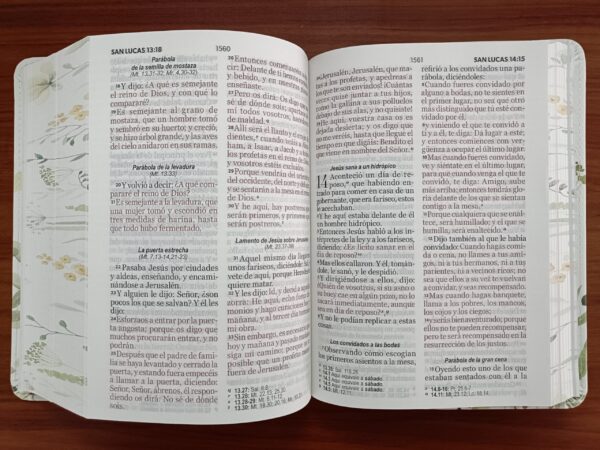 SAN LUCAS 13:18
1560
Parábola
de la semilla de mostaza
(Mt. 13.31-32; Mr. 4.30-32)
18 Y dijo: ¿A qué es semejante
el reino de Dios, y con qué lo
compararé?
19 Es semejante al grano de
mostaza, que un hombre tomó
y sembró en su huerto; y creció,
y se hizo árbol grande, y las aves
del cielo anidaron en sus ramas.
Parábola de la levadura
(Mt. 13.33)
20 Y volvió a decir: ¿A qué compararé
el reino de Dios?
21 Es semejante a la levadura, que
una mujer tomó y escondió en
tres medidas de harina, hasta
que todo hubo fermentado.
La puerta estrecha
(Mt. 7.13-14,21-23)
22 Pasaba Jesús por ciudades
y aldeas, enseñando, y encaminándose
a Jerusalén.
23 Y alguien le dijo: Señor, ¿son
pocos los que se salvan? Y él les
dijo:
24 Esforzaos a entrar por la puerta
angosta; porque os digo que
muchos procurarán entrar, y no
podrán.
25 Después que el padre de familia
se haya levantado y cerrado la
puerta, y estando fuera empecéis
a llamar a la puerta, diciendo:
Señor, Señor, ábrenos, él respondiendo
os dirá: No sé de dónde
sois.
26 Entonces comenzaréis
cir: Delante de ti hemos
y bebido, y en nuestras
enseñaste.
27 Pero os dirá: Os digo
sé de dónde sois; apartaos
mí todos vosotros,
maldad.
28 Allí será el llanto y el
dientes, cuando
ham, a Isaac, a Jacob y
los profetas en el reino de
y vosotros estéis
29 Porque vendrán del oriente
del occidente, del norte y del
y se sentarán a la mesa en
de Dios.
30 Y he aquí, hay postreros
serán primeros, y primeros
serán postreros.
Lamento de Jesús sobre Jerusalén
(Mt. 23.37-39)
31 Aquel mismo día llegaron
nos fariseos, diciéndole:
vete de aquí, porque Herodes
quiere matar.
32 Y les dijo: Id, y decid a
zorra: He aquí, echo fuera
monios y hago
mañana, y al tercer día
mi obra.
33 Sin embargo, es necesario
hoy y mañana y pasado
siga mi camino; porque
posible que un profeta
fuera de Jerusalén.
1561
SAN LUCAS 14:15
34 ¡Jerusalén, Jerusalén, que matas
a los profetas, y apedreas a
los que te son enviados! ¡Cuántas
veces quise juntar a tus hijos,
como la gallina a sus polluelos
debajo de sus alas, y no quisiste!
35 He aquí, vuestra casa os es
dejada desierta; y os digo que
no me veréis, hasta que llegue el
tiempo en que digáis: Bendito el
que viene en nombre del Señor.
Jesús sana a un hidrópico
14 Aconteció un día de reposo,
que habiendo entrado
para comer en casa de un
gobernante, que era fariseo, éstos
le acechaban.
2 Y he aquí estaba delante de él
un hombre hidrópico.
3 Entonces Jesús habló a los intérpretes
de la ley y a los fariseos,
diciendo: ¿Es lícito sanar en el
día de reposo?
4 Mas ellos callaron. Y él, tomándole,
le sanó, y le despidió.
5 Y dirigiéndose a ellos, dijo:
¿Quién de vosotros, si su asno o
su buey cae en algún pozo, no lo
sacará inmediatamente, aunque
sea en día de reposo?
6 Y no le podían replicar a estas
cosas.
Los convidados a las bodas
7 Observando cómo escogían
los primeros asientos a la mesa,
refirió a los convidados una parábola,
diciéndoles:
8 Cuando fueres convidado por
alguno a bodas, no te sientes en
el primer lugar, no sea que otro
más distinguido que tú esté convidado
por él,
9 y viniendo el que te convidó a
ti y a él, te diga: Da lugar a éste; y
entonces comiences con vergüenza
a ocupar el último lugar.
10 Mas cuando fueres convidado,
ve y siéntate en el último lugar,
para que cuando venga el que te
convidó, te diga: Amigo, sube
más arriba; entonces tendrás gloria
delante de los que se sientan
contigo a la mesa.
11 Porque cualquiera que se enaltece,
será humillado; y el que se
humilla, será enaltecido.
12 Dijo también al que le había
convidado: Cuando hagas comida
o cena, no llames a tus amigos,
ni a tus hermanos, ni a tus
parientes, ni a vecinos ricos; no
sea que ellos a su vez te vuelvan
a convidar, y seas recompensado.
13 Mas cuando hagas banquete,
llama a los pobres, los mancos,
los cojos y los ciegos;
14 y serás bienaventurado; porque
ellos no te pueden recompensar,
pero te será recompensado en la
resurrección de los justos.
Parábola de la gran cena
15 Oyendo esto uno de los que
estaban sentados con él a la